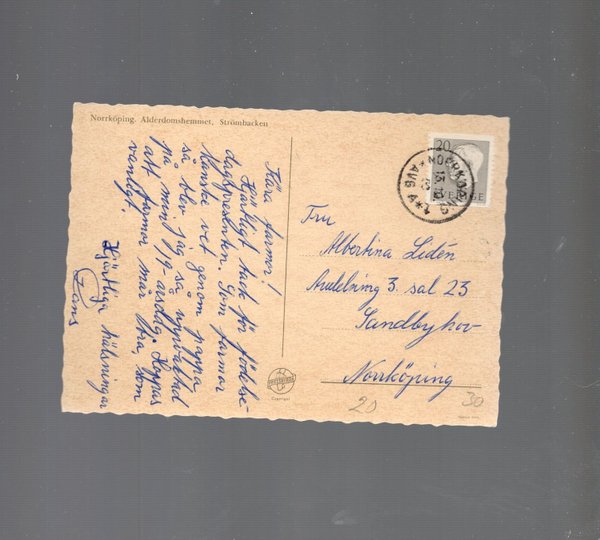 Norrköping. Ålderdomshemmet, Strömbacken
Kära farmor!
Hjärtligt tack för födelse-
dagspresenten. Som farmor
kanske vet genom pappa,
så blev jag så uppvaktad
på min 19-årsdag. Hoppas
att farmor mår bra, som
vanligt.
Hjärtliga hälsningar
Hans
20
SVERIGE
NORRKÖPING
AVG
Fru
Albertina Lidén
Avdelning 3. sal 23
Sandbyhov
Norrköping
20
30